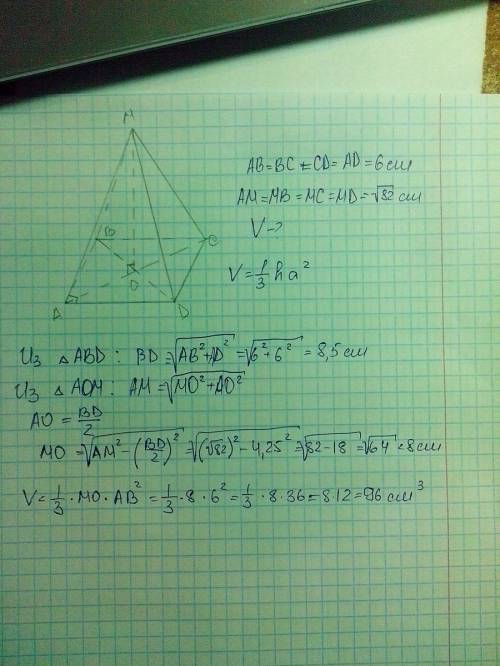 M
B
C
O
A
D
AB=BC=CD=AD=6см
AM=MB=MC=MD=√82 см
V-?
V=1/3 h a²
Из △ABD: BD=√(AB²+AD²)=√(6²+6²)=8,5см
Из △AOM: AM=√(MO²+AO²)
AO=BD/2
MO=√(AM²-(BD/2)²)=√((√82)²-4,25²)=√(82-18)=√64=8см
V=1/3·MO·AB²=1/3·8·6²=1/3·8·36=8·12=96 см³